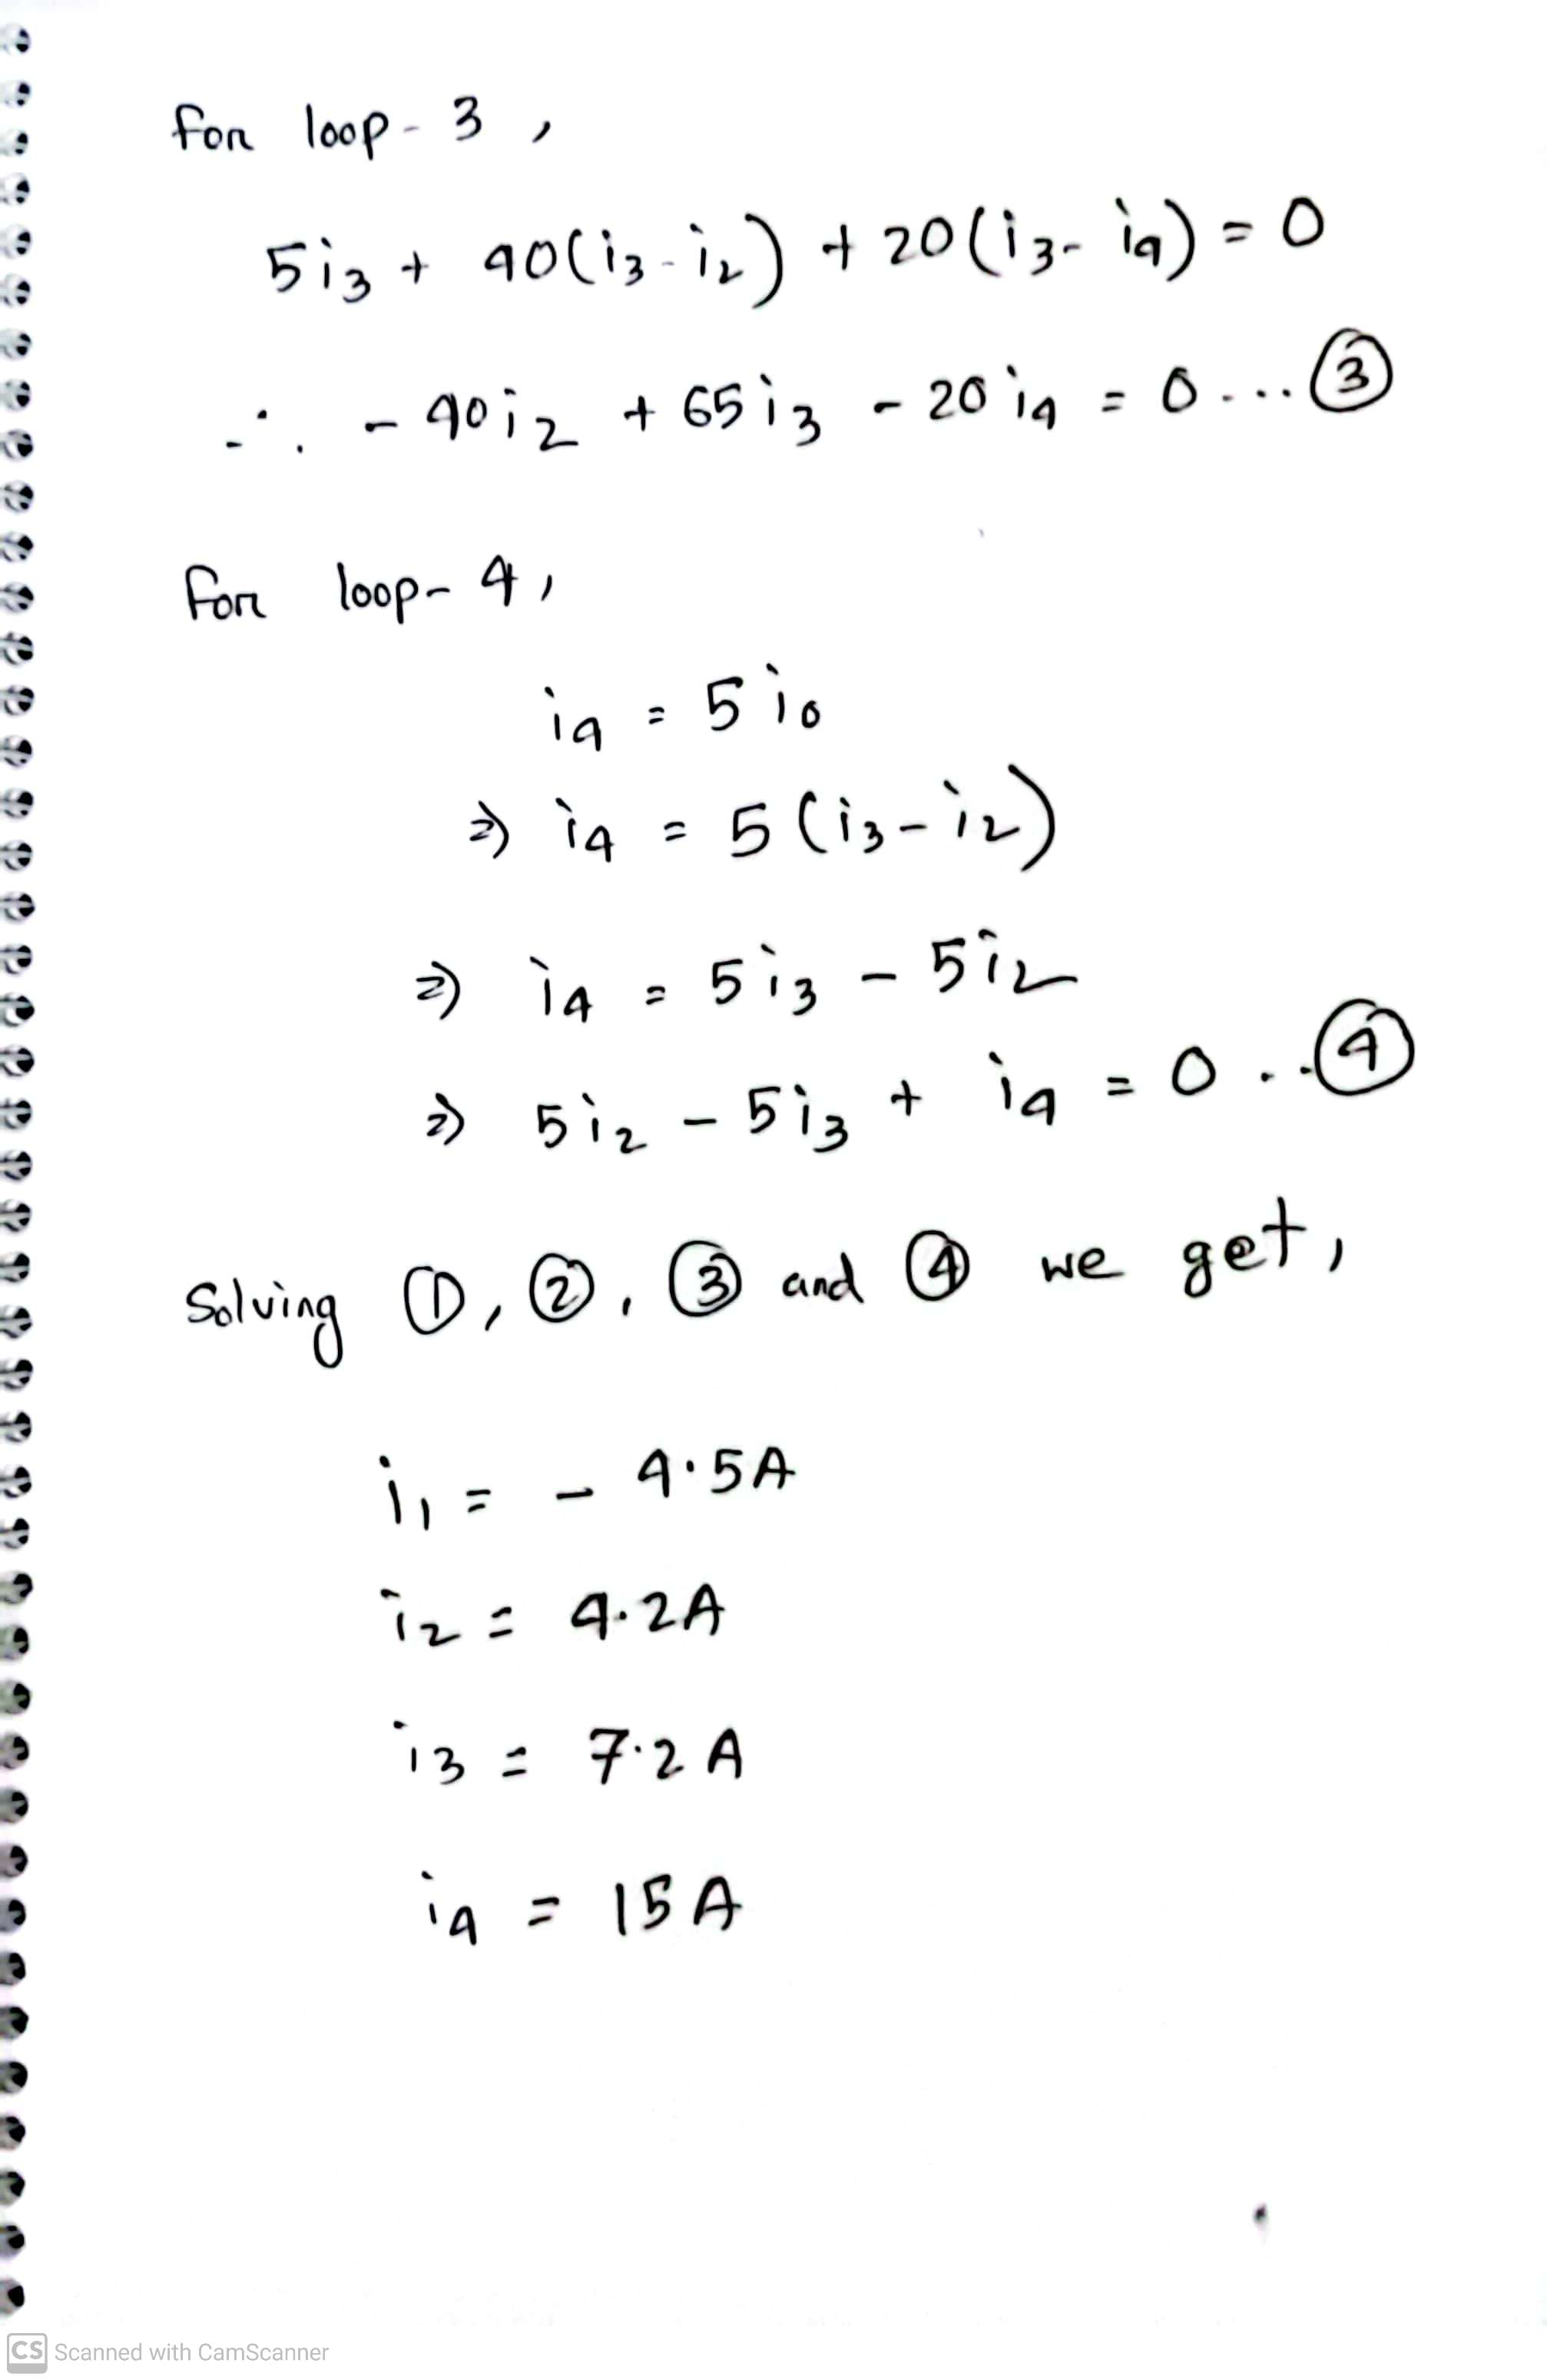 for loop - 3 ,
5i₃ + 40(i₃ - i₂) + 20(i₃ - i₄) = 0
∴ - 40i₂ + 65i₃ - 20i₄ = 0 ... ③
for loop - 4 ,
i₄ = 5i₀
⇒ i₄ = 5(i₃ - i₂)
⇒ i₄ = 5i₃ - 5i₂
⇒ 5i₂ - 5i₃ + i₄ = 0 ... ④
Solving ①, ②, ③ and ④ we get,
i₁ = - 4.5A
i₂ = 4.2A
i₃ = 7.2A
i₄ = 15A
CS Scanned with CamScanner